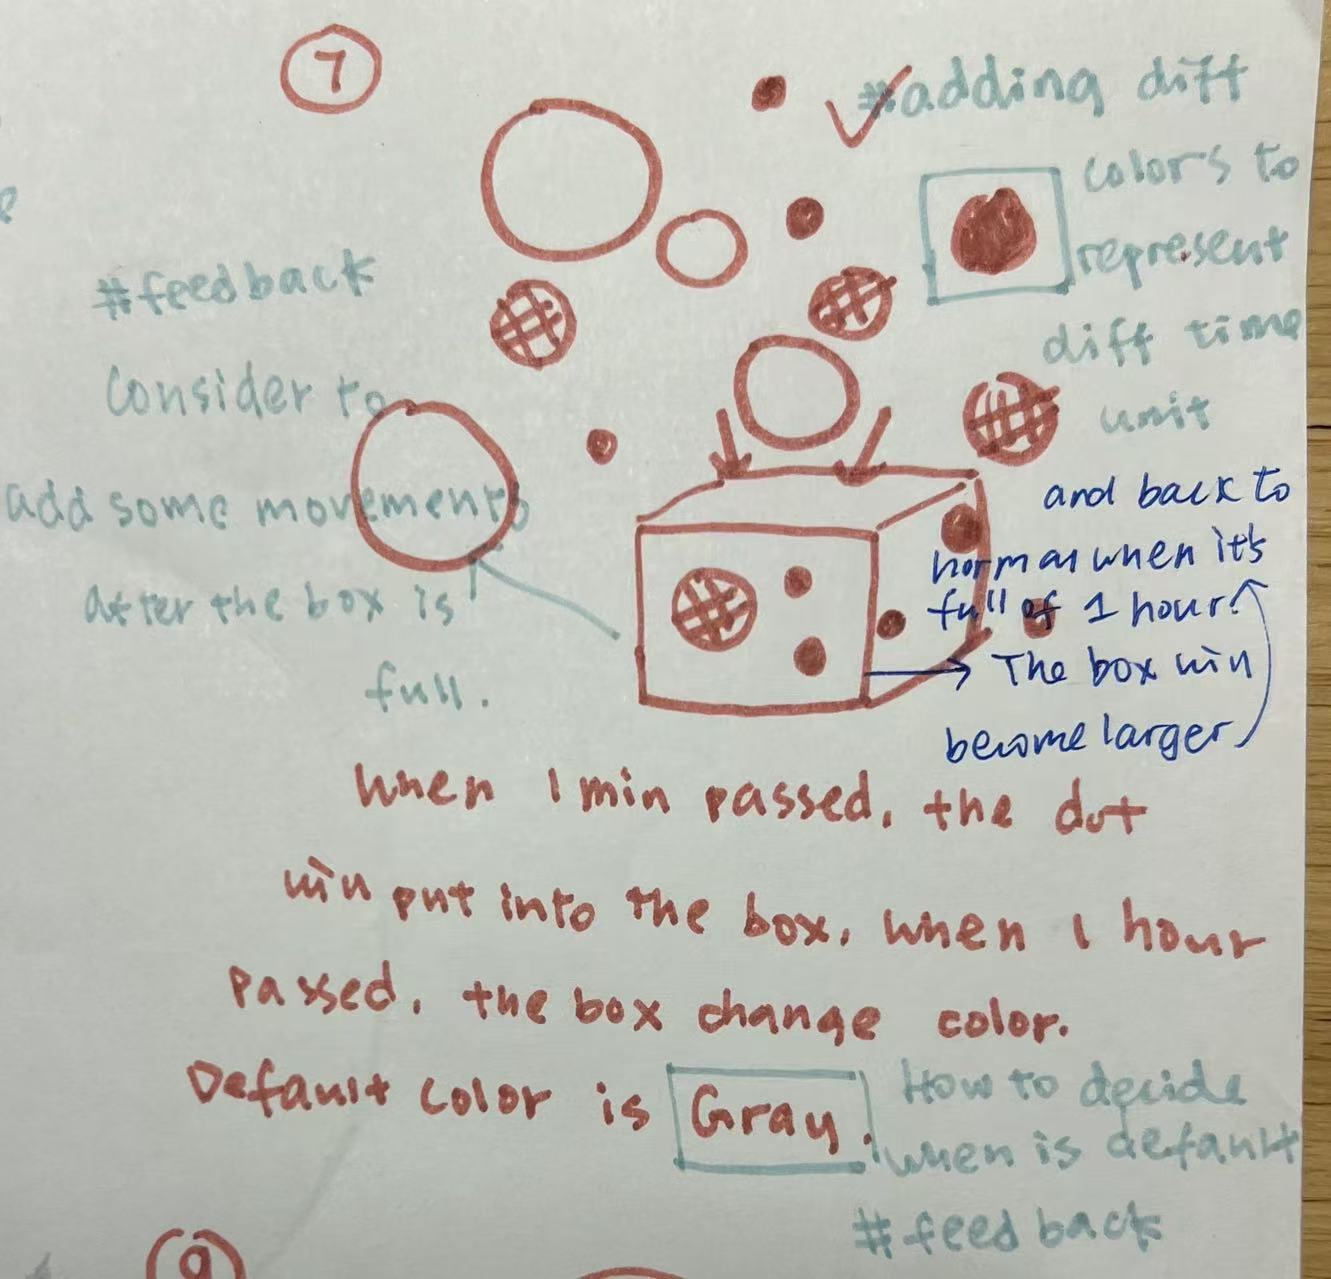 7
#adding diff
colors to
represent
diff time
unit
#feedback
Consider to
add some movements
after the box is
full.
and back to
normal when it's
full of 1 hour.
The box will
become larger
When 1 min passed, the dot
will put into the box, when 1 hour
passed, the box change color.
Default color is Gray.
How to decide
when is default
#feedback
9